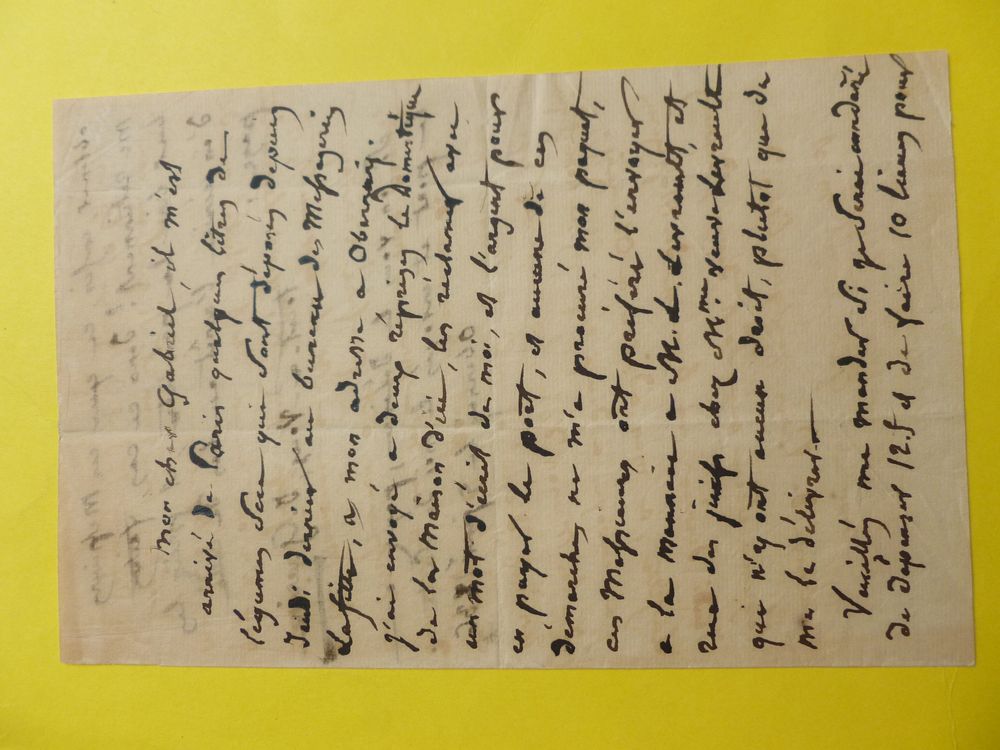 Mon cher Gabriel il m'est
arrivé de Paris quelques litres de
légumes secs qui sont déposés depuis
Jeudi dernier au bureau des Messageries
Lafitte, a mon adresse a Obernai.
j'ai envoyé a deux reprises le domestique
de la Maison d'ici, les reclamer avec
un mot d'écrit de moi, et l'argent pour
en payer le port, et aucune de ces
démarches ne m'a procuré mon paquet,
ces Messieurs ont preferé l'envoyer
a la Mannie a M. L. Levrault, et
rue des juifs chez Mme veuve Levrault
qui n'y ont aucun droit, plutot que de
me le délivrer.—
Veuillez me mander si je serai condané
de dépenser 12.f et de faire 10 lieues pour